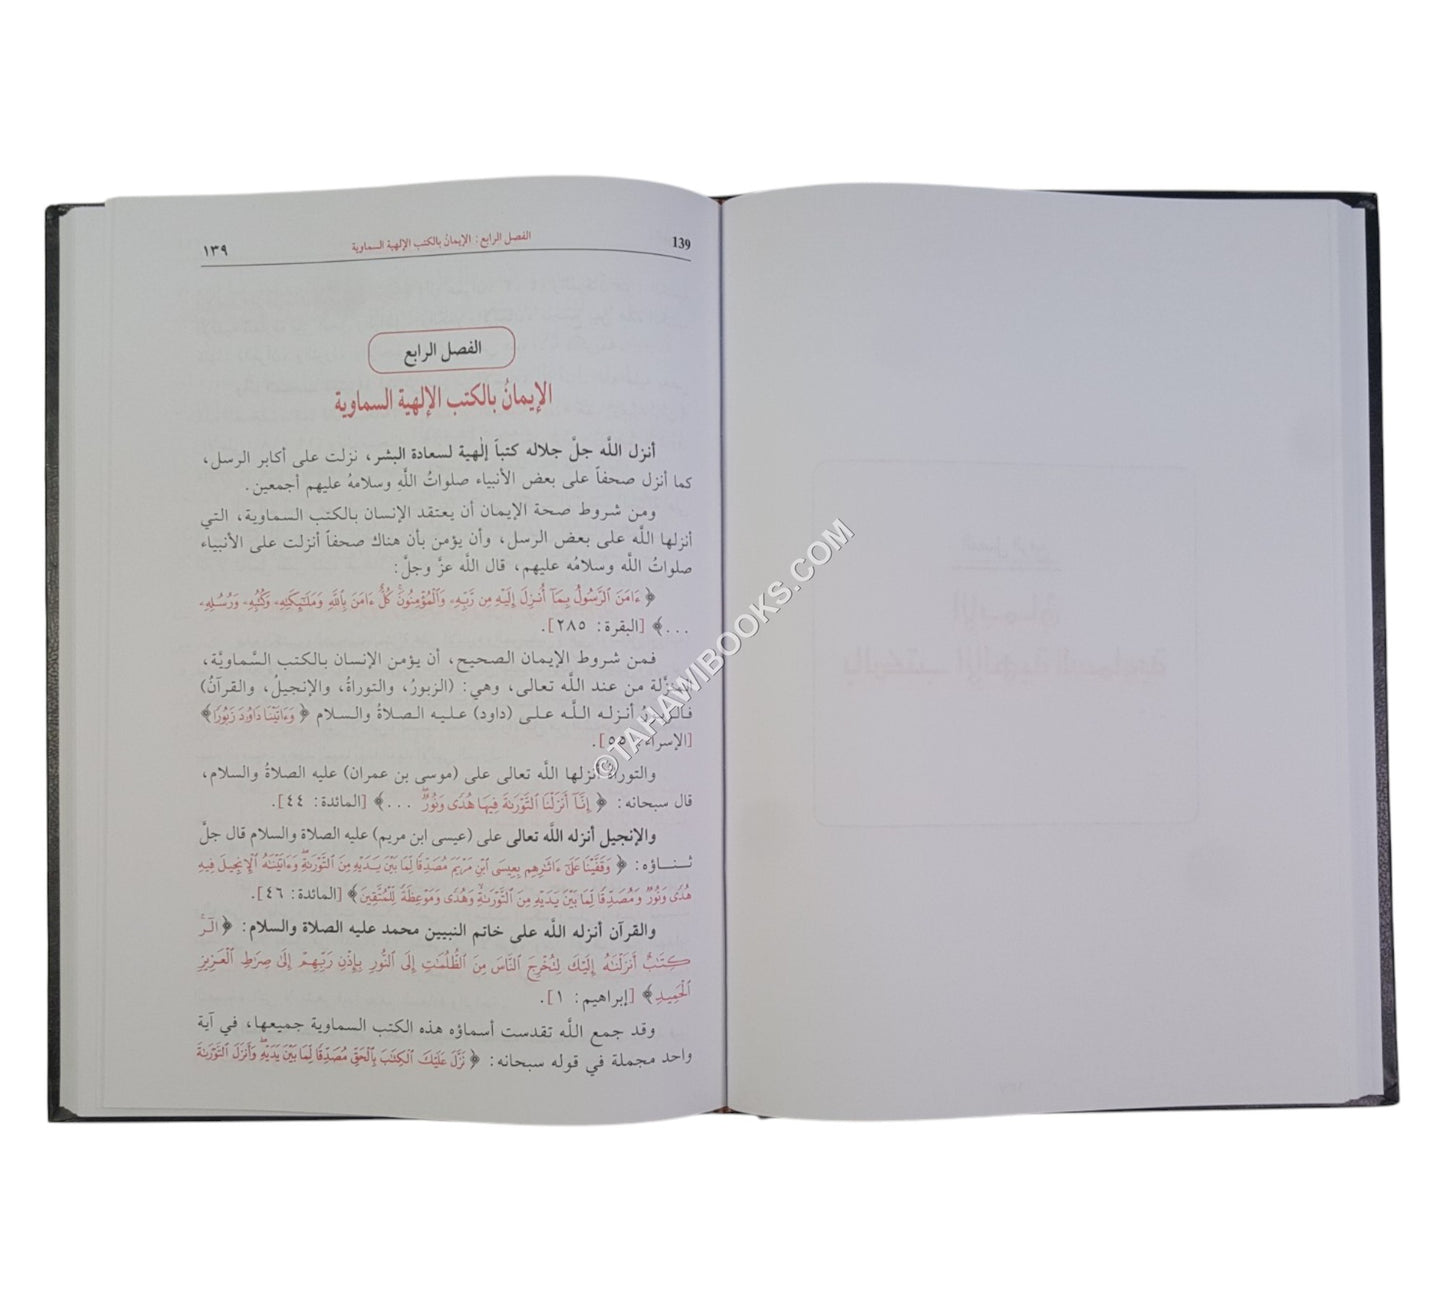 139 الفصل الرابع: الإيمانُ بالكتب الإلهية السماوية ١٣٩
الفصل الرابع
الإيمانُ بالكتب الإلهية السماوية
أنزل اللَّه جلَّ جلاله كتباً إلٰهية لسعادة البشر، نزلت على أكابر الرسل،
كما أنزل صحفاً على بعض الأنبياء صلواتُ اللَّهِ وسلامهُ عليهم أجمعين.
ومن شروط صحة الإيمان أن يعتقد الإنسان بالكتب السماوية، التي
أنزلها اللَّه على بعض الرسل، وأن يؤمن بأن هناك صحفاً أنزلت على الأنبياء
صلواتُ اللَّه وسلامُه عليهم، قال اللَّه عزَّ وجلَّ:
﴿ ءَامَنَ ٱلرَّسُولُ بِمَآ أُنزِلَ إِلَيْهِ مِن رَّبِّهِۦ وَٱلْمُؤْمِنُونَۚ كُلٌّ ءَامَنَ بِٱللَّهِ وَمَلَـٰٓئِكَتِهِۦ وَكُتُبِهِۦ وَرُسُلِهِۦ
...﴾ [البقرة: ٢٨٥].
فمن شروط الإيمان الصحيح، أن يؤمن الإنسان بالكتب السَّماويَّة،
المنزَّلة من عند اللَّه تعالى، وهي: (الزبورُ، والتوراةُ، والإنجيلُ، والقرآنُ)
فالزبورُ أنزله اللَّه على (داود) عليه الصلاةُ والسلام ﴿ وَءَاتَيْنَا دَاوُۥدَ زَبُورًا﴾
[الإسراء: ٥٥].
والتوراةُ أنزلها اللَّه تعالى على (موسى بن عمران) عليه الصلاةُ والسلام،
قال سبحانه: ﴿ إِنَّآ أَنزَلْنَا ٱلتَّوْرَىٰةَ فِيهَا هُدًى وَنُورٌۚ ...﴾ [المائدة: ٤٤].
والإنجيل أنزله اللَّه تعالى على (عيسى ابن مريم) عليه الصلاة والسلام قال جلَّ
ثـنـاؤه: ﴿ وَقَفَّيْنَا عَلَىٰٓ ءَاثَـٰرِهِم بِعِيسَى ٱبْنِ مَرْيَمَ مُصَدِّقًا لِّمَا بَيْنَ يَدَيْهِ مِنَ ٱلتَّوْرَىٰةِۖ وَءَاتَيْنَـٰهُ ٱلْإِنجِيلَ فِيهِ
هُدًى وَنُورٌ وَمُصَدِّقًا لِّمَا بَيْنَ يَدَيْهِ مِنَ ٱلتَّوْرَىٰةِ وَهُدًى وَمَوْعِظَةً لِّلْمُتَّقِينَ﴾ [المائدة: ٤٦].
والقرآن أنزله اللَّه على خاتم النبيين محمد عليه الصلاة والسلام: ﴿ الٓرۚ
كِتَـٰبٌ أَنزَلْنَـٰهُ إِلَيْكَ لِتُخْرِجَ ٱلنَّاسَ مِنَ ٱلظُّلُمَـٰتِ إِلَى ٱلنُّورِ بِإِذْنِ رَبِّهِمْ إِلَىٰ صِرَٰطِ ٱلْعَزِيزِ
ٱلْحَمِيدِ﴾ [إبراهيم: ١].
وقد جمع اللَّه تقدست أسماؤه هذه الكتب السماوية جميعها، في آية
واحد مجملة في قوله سبحانه: ﴿ نَزَّلَ عَلَيْكَ ٱلْكِتَـٰبَ بِٱلْحَقِّ مُصَدِّقًا لِّمَا بَيْنَ يَدَيْهِ وَأَنزَلَ ٱلتَّوْرَىٰةَ
©TAHAWIBOOKS.COM